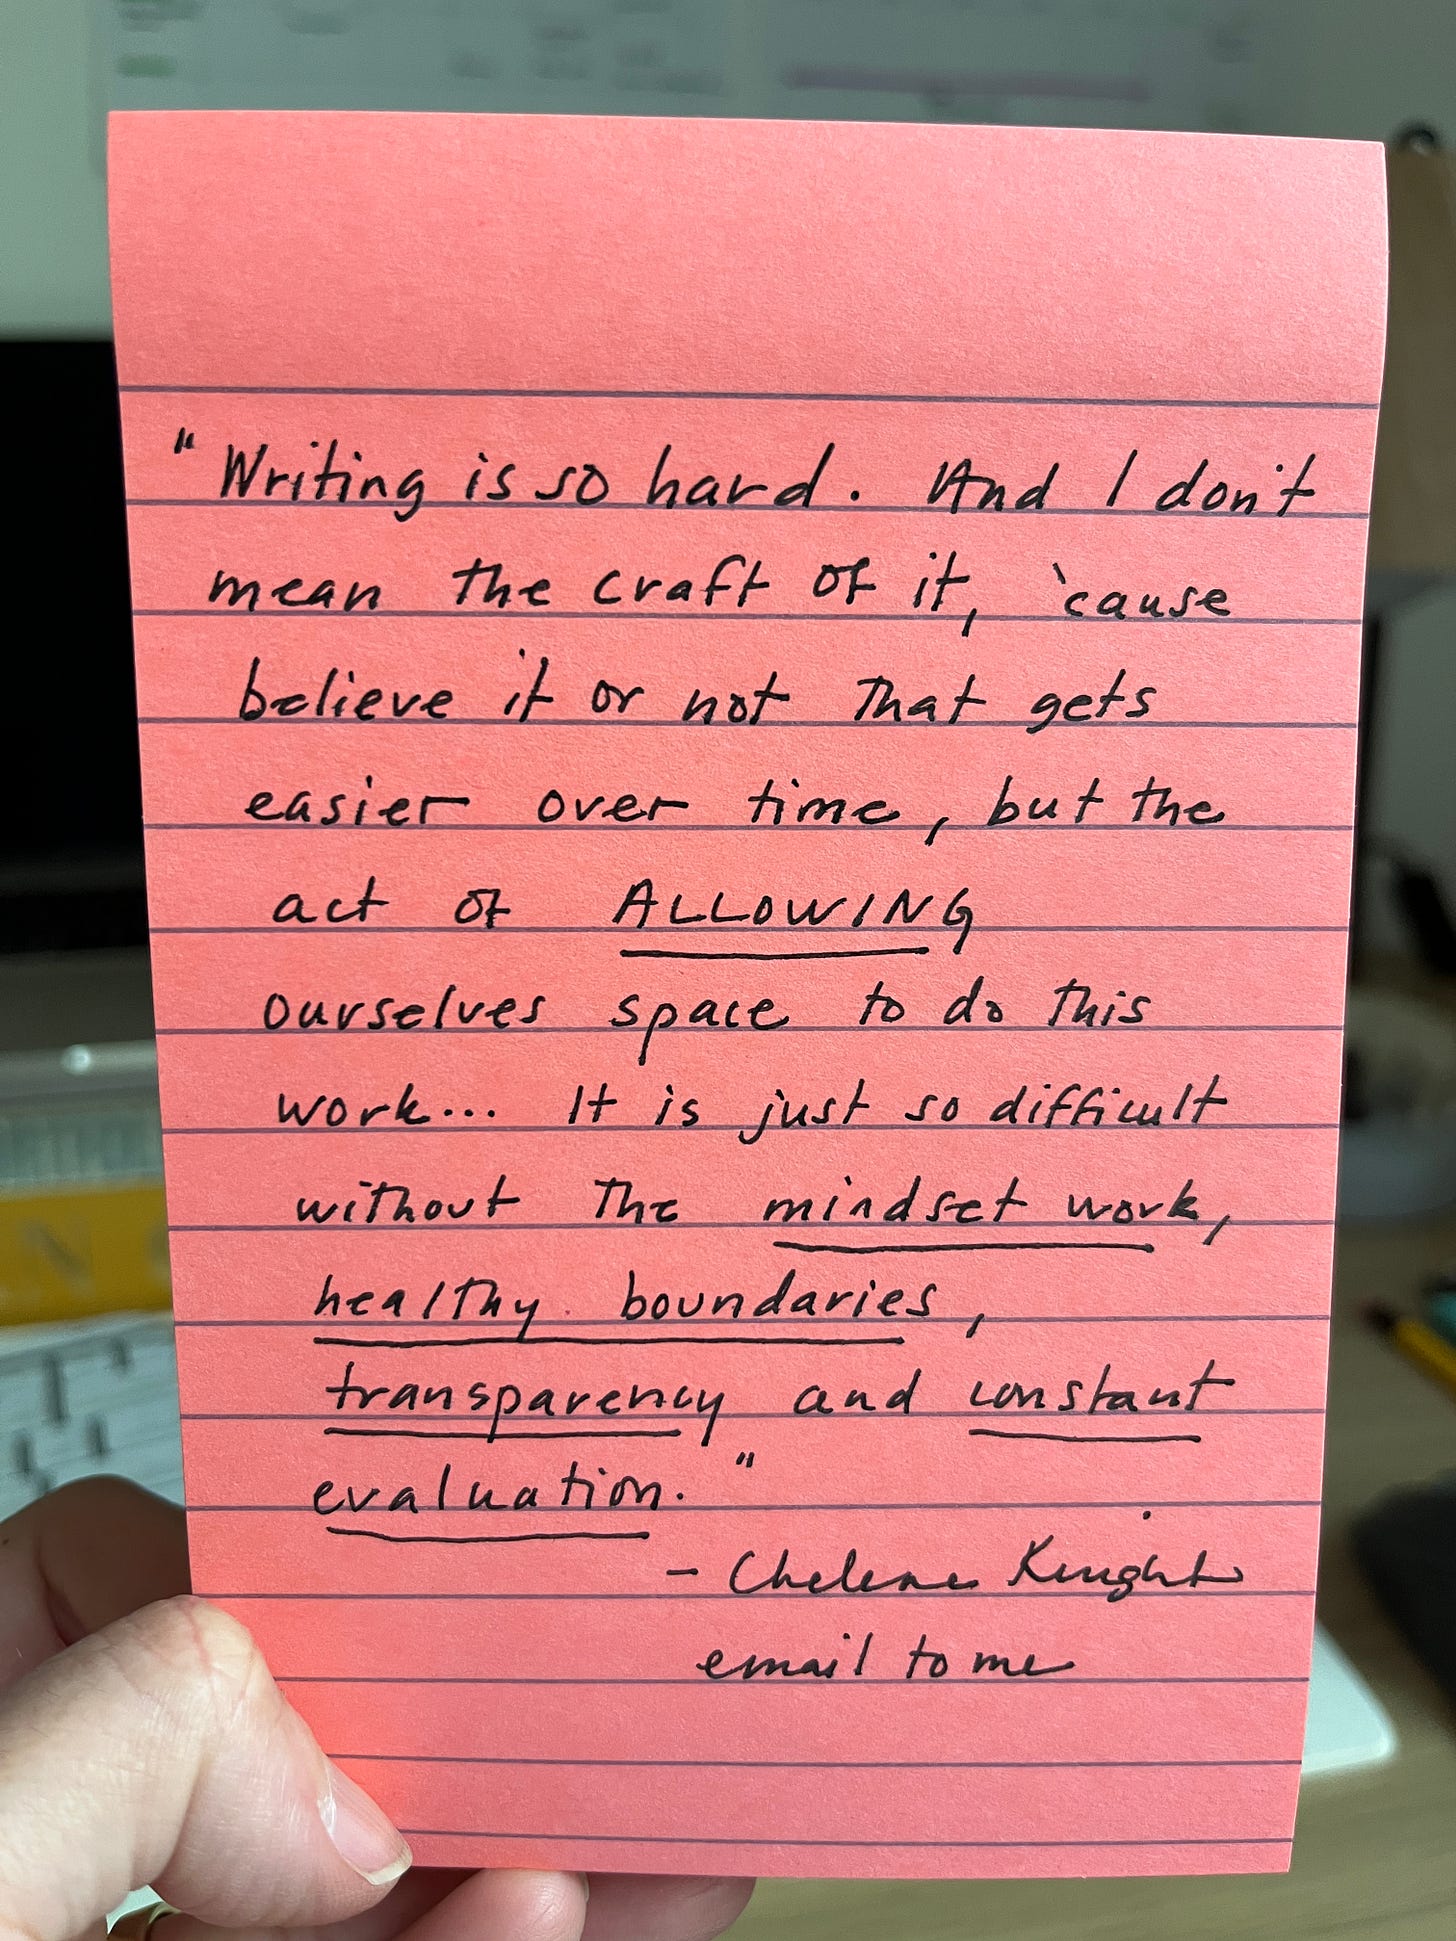 "Writing is so hard. And I don't
mean the craft of it, 'cause
believe it or not that gets
easier over time, but the
act of ALLOWING
ourselves space to do this
work... It is just so difficult
without the mindset work,
healthy boundaries,
transparency and constant
evaluation."
- Chelene Knight
email to me